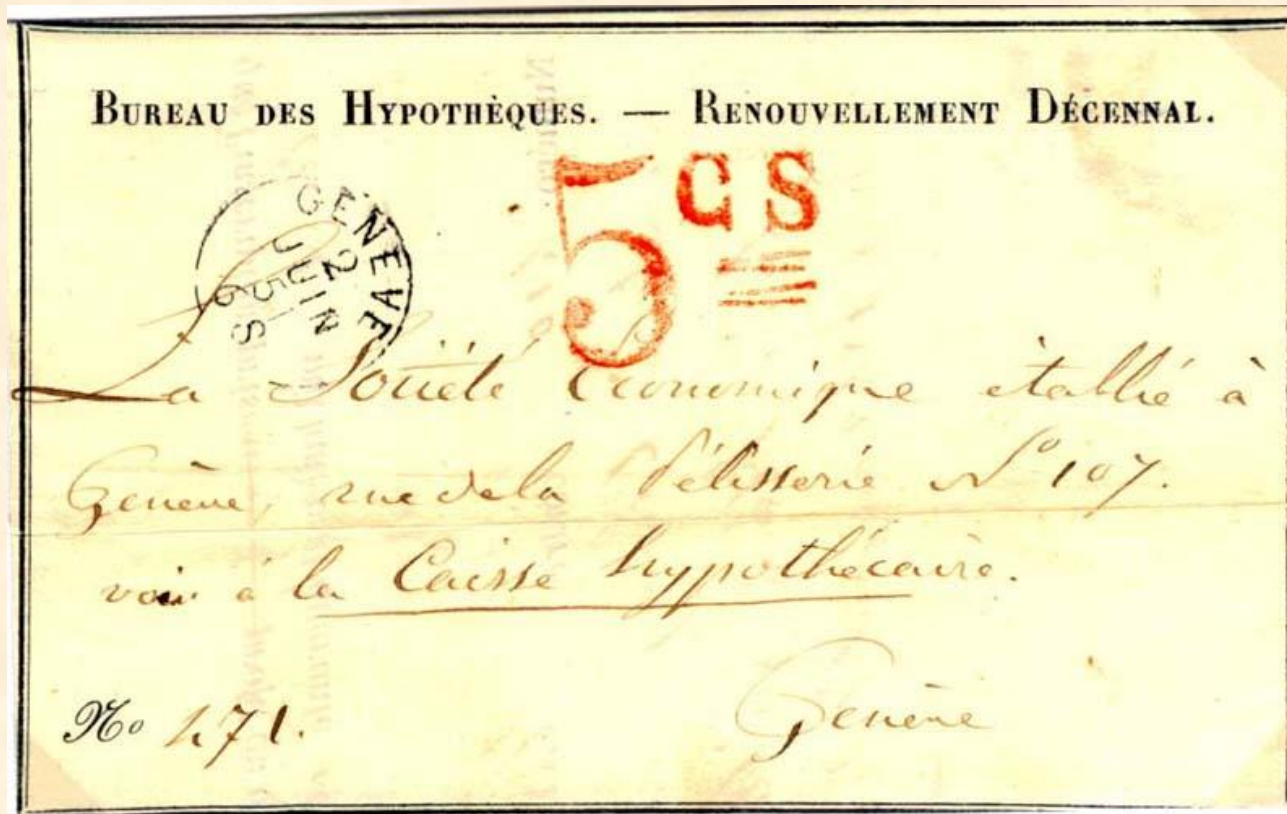 BUREAU DES HYPOTHÈQUES. — RENOUVELLEMENT DÉCENNAL.
5 CS
GENEVE
2
JUIN
51
6 S
La Société Economique établie à
Genève, rue de la Pélisserie N° 107.
voir à la Caisse hypothécaire.
Genève
No 471.